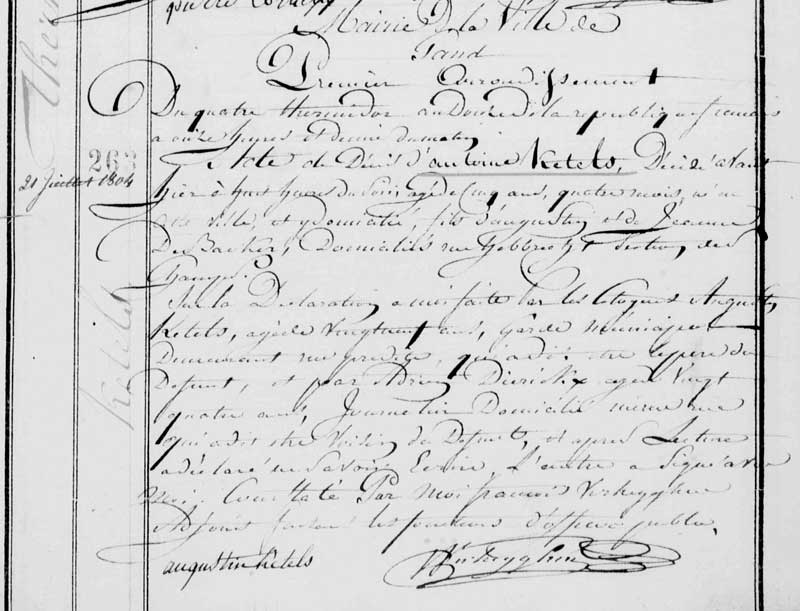 Mairie De la Ville de
Gand
Premier Arrondissement
Du quatre thermidor an Douze De la republique francaise
a onze heures et demie du matin
263
21 Juillet 1804
Acte de Décès d'antoine Ketels, Décédé avant
hier à huit heures du soir agé de Cinq ans, quatre mois, né en
cette ville, et y Domicilié, fils d'augustin et de Jeanne
De Backer, Domiciliés rue section des
Champs.
Sur la Déclaration a moi faite par les Citoyens Augustin
Ketels, agé de Vingt neuf ans, Garde municipal
Demeurant rue predite, qui a dit etre le pere du
Defunt, et par Adrien Dierickx agé de Vingt
quatre ans, Journalier Domicilié même rue
qui a dit etre Voisin du Defunt, et apres Lecture
a déclaré ne Savoir Ecrire, L'autre a Signé avec
Moi. Constaté Par Moi francois Verheyghen
Adjoint faisant les fonctions d'officier public,
augustin ketels
Verheyghen
Ketels